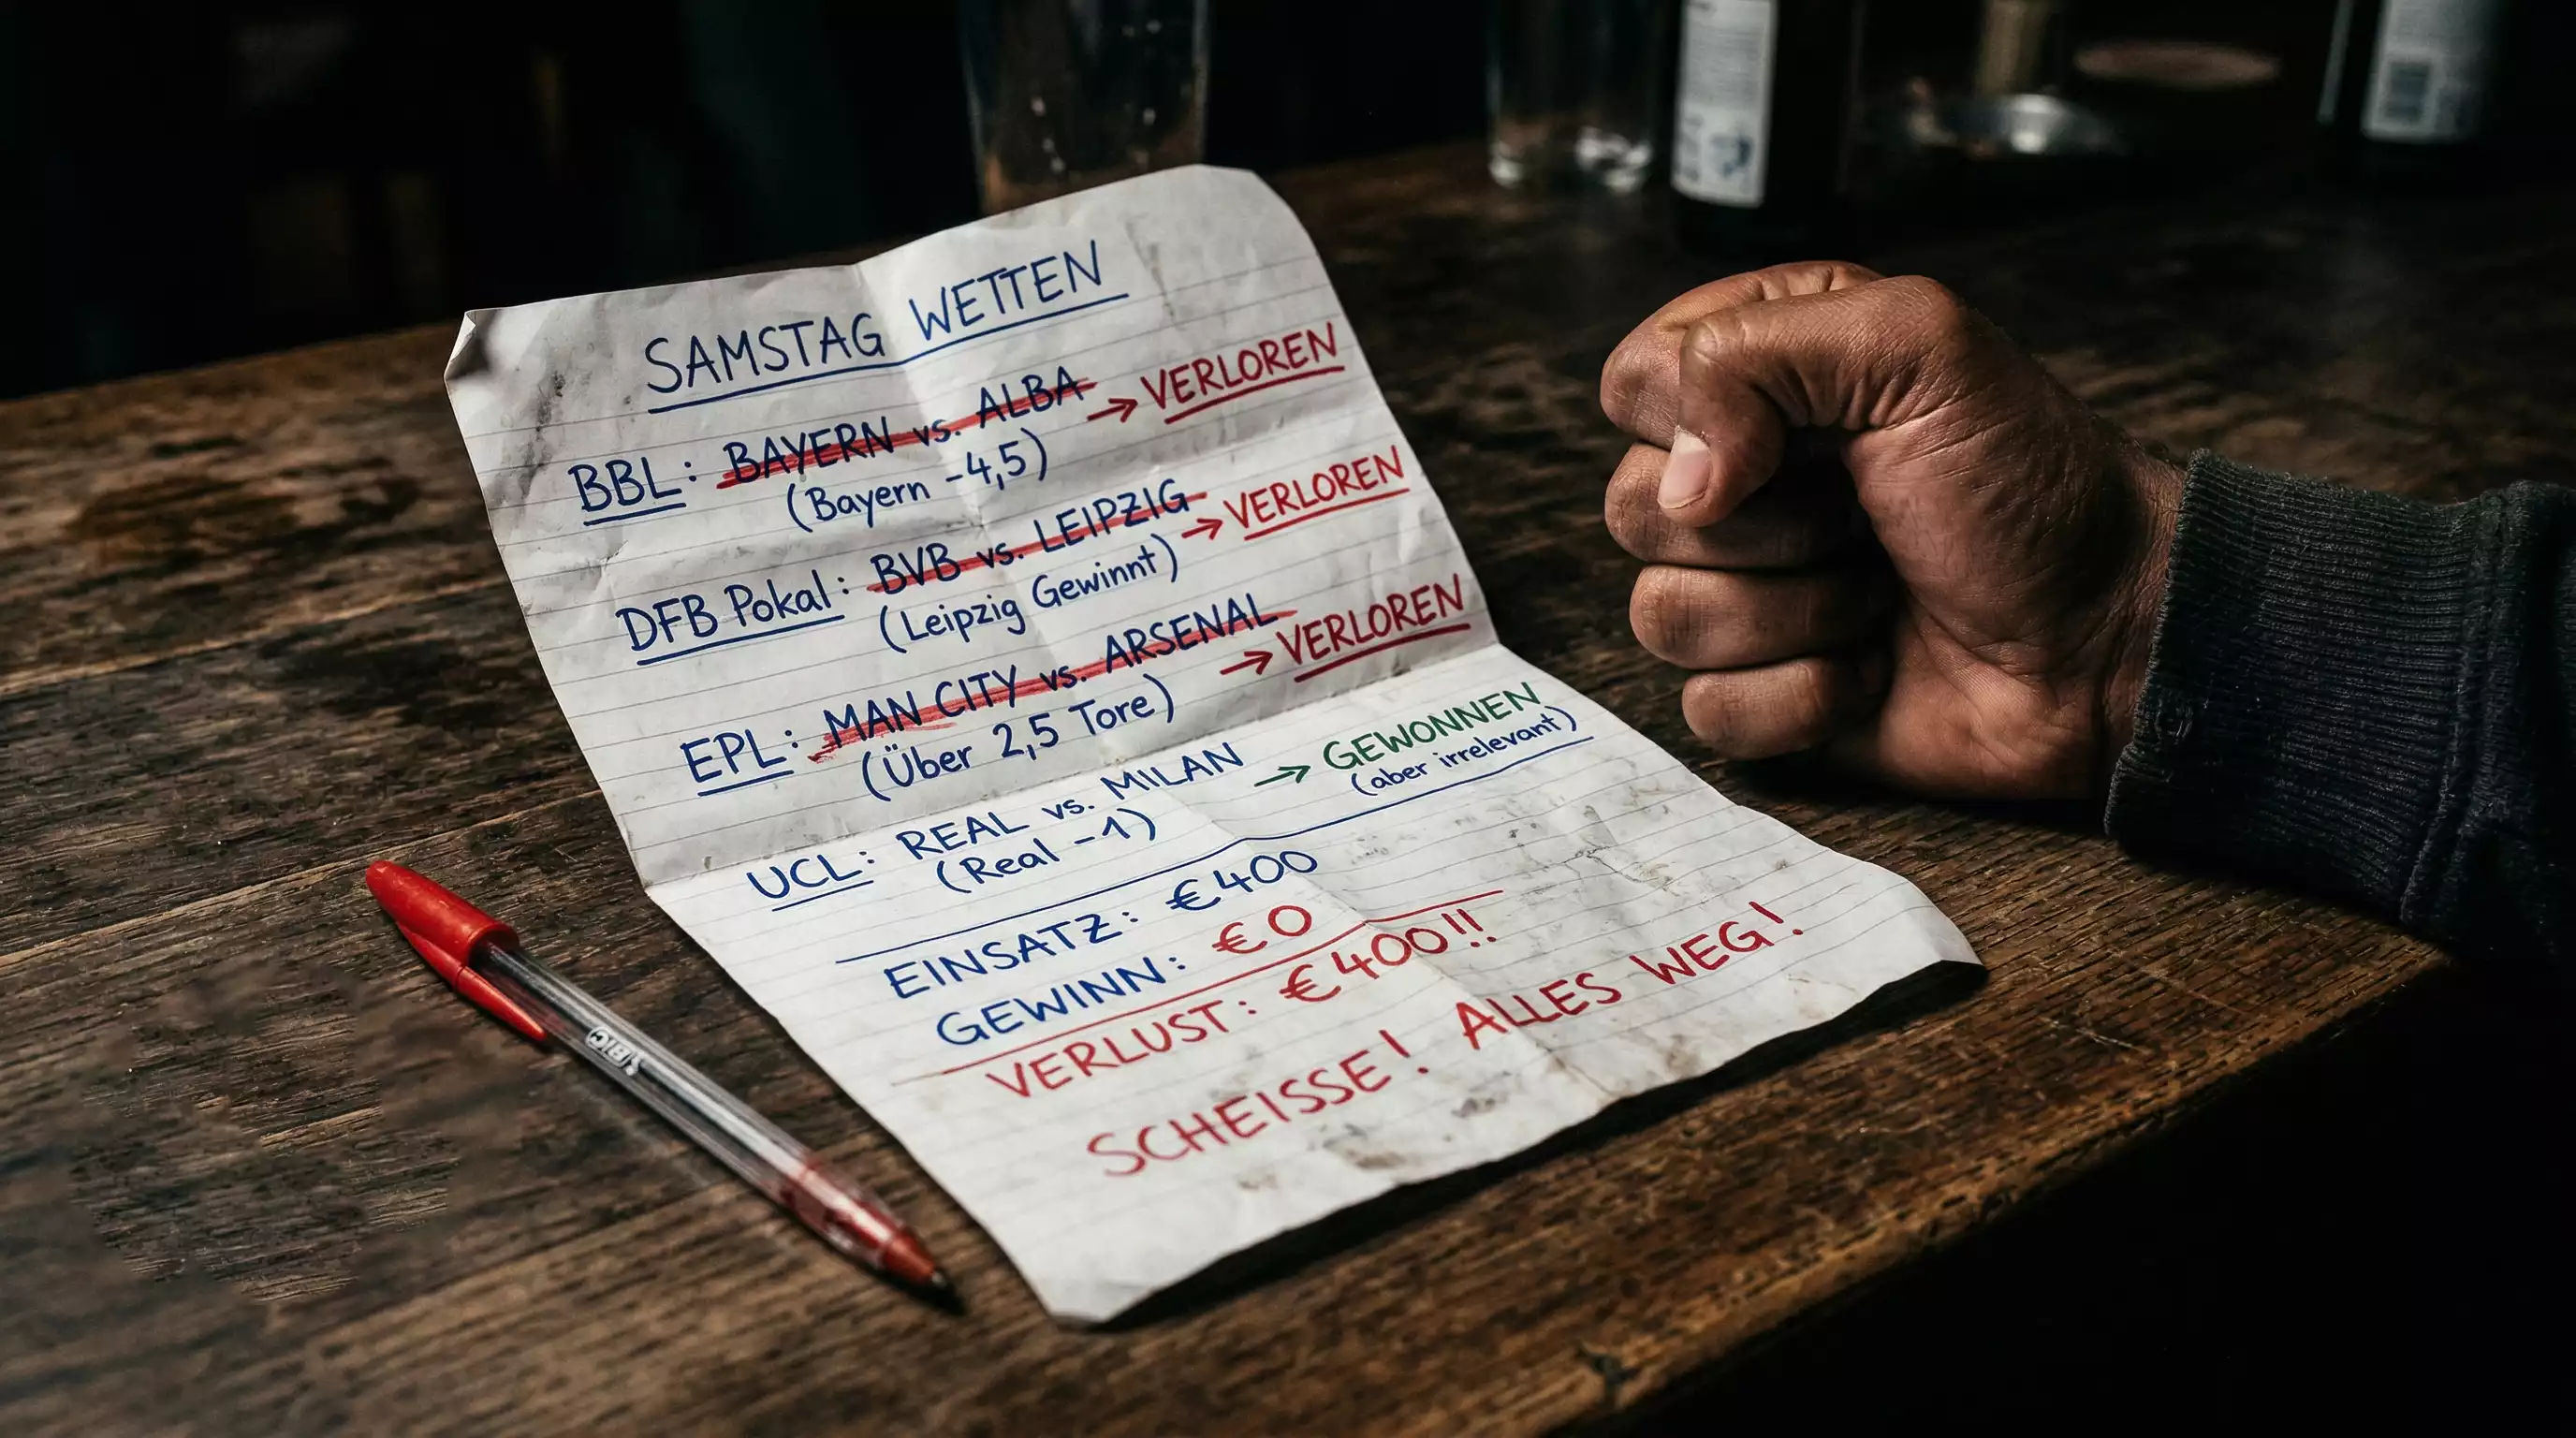 SAMSTAG WETTEN
BBL: BAYERN vs. ALBA → VERLOREN
(Bayern -4,5)
DFB Pokal: BVB vs. LEIPZIG → VERLOREN
(Leipzig Gewinnt)
EPL: MAN CITY vs. ARSENAL → VERLOREN
(Über 2,5 Tore)
UCL: REAL vs. MILAN → GEWONNEN
(Real -1) (aber irrelevant)
EINSATZ: €400
GEWINN: €0
VERLUST: €400!!
SCHEISSE! ALLES WEG!
BIC